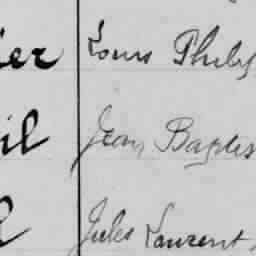 ier Louis Philip
il Jean Baptis
l Jules Laurent,